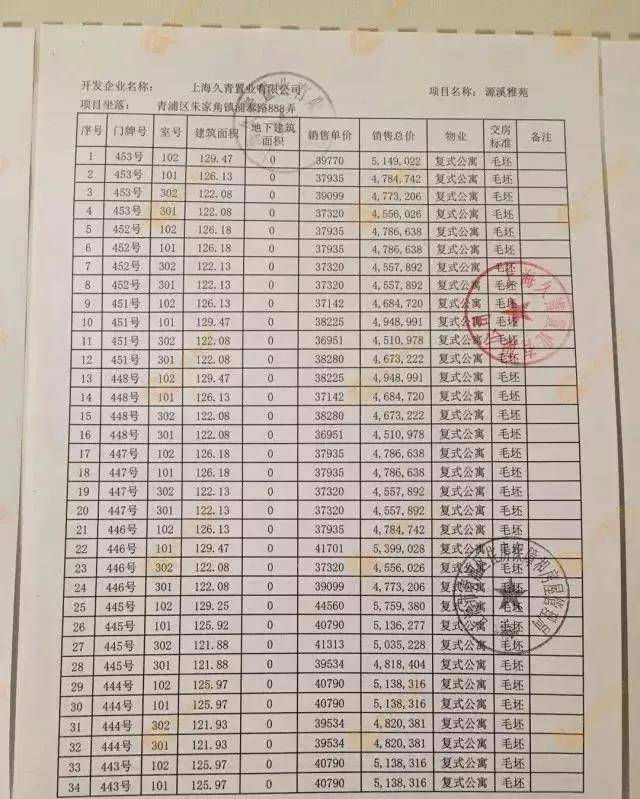 开发企业名称： 上海久青置业有限公司 项目名称：源溪雅苑
项目坐落： 青浦区朱家角镇浦泰路888弄
序号 门牌号 室号 建筑面积 地下建筑面积 销售单价 销售总价 物业 交房标准 备注
1 453号 102 129.47 0 39770 5,149,022 复式公寓 毛坯
2 453号 101 126.13 0 37935 4,784,742 复式公寓 毛坯
3 453号 302 122.08 0 39099 4,773,206 复式公寓 毛坯
4 453号 301 122.08 0 37320 4,556,026 复式公寓 毛坯
5 452号 102 126.18 0 37935 4,786,638 复式公寓 毛坯
6 452号 101 126.18 0 37935 4,786,638 复式公寓 毛坯
7 452号 302 122.13 0 37320 4,557,892 复式公寓 毛坯
8 452号 301 122.13 0 37320 4,557,892 复式公寓 毛坯
9 451号 102 126.13 0 37142 4,684,720 复式公寓 毛坯
10 451号 101 129.47 0 38225 4,948,991 复式公寓 毛坯
11 451号 302 122.08 0 36951 4,510,978 复式公寓 毛坯
12 451号 301 122.08 0 38280 4,673,222 复式公寓 毛坯
13 448号 102 129.47 0 38225 4,948,991 复式公寓 毛坯
14 448号 101 126.13 0 37142 4,684,720 复式公寓 毛坯
15 448号 302 122.08 0 38280 4,673,222 复式公寓 毛坯
16 448号 301 122.08 0 36951 4,510,978 复式公寓 毛坯
17 447号 102 126.18 0 37935 4,786,638 复式公寓 毛坯
18 447号 101 126.18 0 37935 4,786,638 复式公寓 毛坯
19 447号 302 122.13 0 37320 4,557,892 复式公寓 毛坯
20 447号 301 122.13 0 37320 4,557,892 复式公寓 毛坯
21 446号 102 126.13 0 37935 4,784,742 复式公寓 毛坯
22 446号 101 129.47 0 41701 5,399,028 复式公寓 毛坯
23 446号 302 122.08 0 37320 4,556,026 复式公寓 毛坯
24 446号 301 122.08 0 39099 4,773,206 复式公寓 毛坯
25 445号 102 129.25 0 44560 5,759,380 复式公寓 毛坯
26 445号 101 125.92 0 40790 5,136,277 复式公寓 毛坯
27 445号 302 121.88 0 41313 5,035,228 复式公寓 毛坯
28 445号 301 121.88 0 39534 4,818,404 复式公寓 毛坯
29 444号 102 125.97 0 40790 5,138,316 复式公寓 毛坯
30 444号 101 125.97 0 40790 5,138,316 复式公寓 毛坯
31 444号 302 121.93 0 39534 4,820,381 复式公寓 毛坯
32 444号 301 121.93 0 39534 4,820,381 复式公寓 毛坯
33 443号 102 125.97 0 40790 5,138,316 复式公寓 毛坯
34 443号 101 125.97 0 40790 5,138,316 复式公寓 毛坯